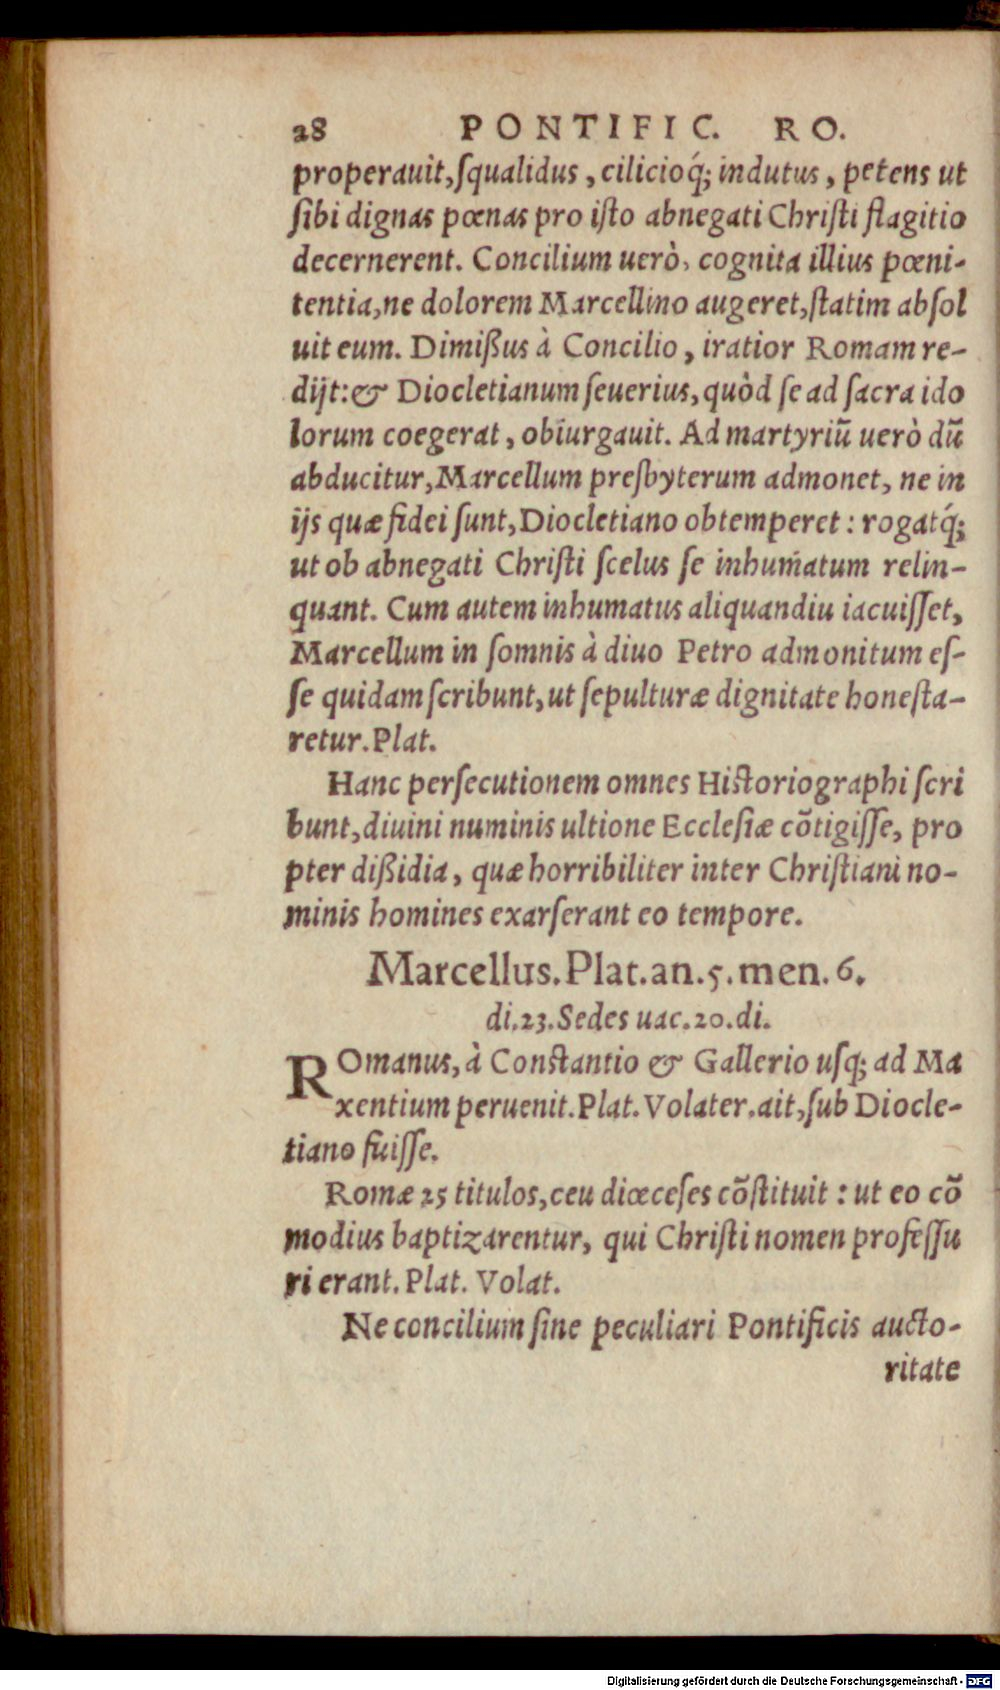 28 PONTIFIC. RO.
properauit, ſqualidus, cilicioq́; indutus, petens ut
ſibi dignas pœnas pro iſto abnegati Chriſti flagitio
decernerent. Concilium uerò, cognita illius pœni-
tentia, ne dolorem Marcellino augeret, ſtatim abſol
uit eum. Dimißus à Concilio, iratior Romam re-
dijt: & Diocletianum ſeuerius, quòd ſe ad ſacra ido
lorum coegerat, obiurgauit. Ad martyriũ uerò dũ
abducitur, Marcellum preſbyterum admonet, ne in
ijs quæ fidei ſunt, Diocletiano obtemperet: rogatq́;
ut ob abnegati Chriſti ſcelus ſe inhumatum relin-
quant. Cum autem inhumatus aliquandiu iacuiſſet,
Marcellum in ſomnis à diuo Petro admonitum eſ-
ſe quidam ſcribunt, ut ſepulturæ dignitate honeſta-
retur. Plat.
Hanc perſecutionem omnes Hiſtoriographi ſcri
bunt, diuini numinis ultione Eccleſiæ cõtigiſſe, pro
pter dißidia, quæ horribiliter inter Chriſtiani no-
minis homines exarſerant eo tempore.
Marcellus. Plat. an. 5. men. 6.
di. 23. Sedes uac. 20. di.
ROmanus, à Conſtantio & Gallerio uſq; ad Ma
xentium peruenit. Plat. Volater. ait, ſub Diocle-
tiano fuiſſe.
Romæ 25 titulos, ceu diœceſes cõſtituit: ut eo cõ
modius baptizarentur, qui Chriſti nomen profeſſu
ri erant. Plat. Volat.
Ne concilium ſine peculiari Pontificis aucto-
ritate
Digitalisierung gefördert durch die Deutsche Forschungsgemeinschaft - DFG